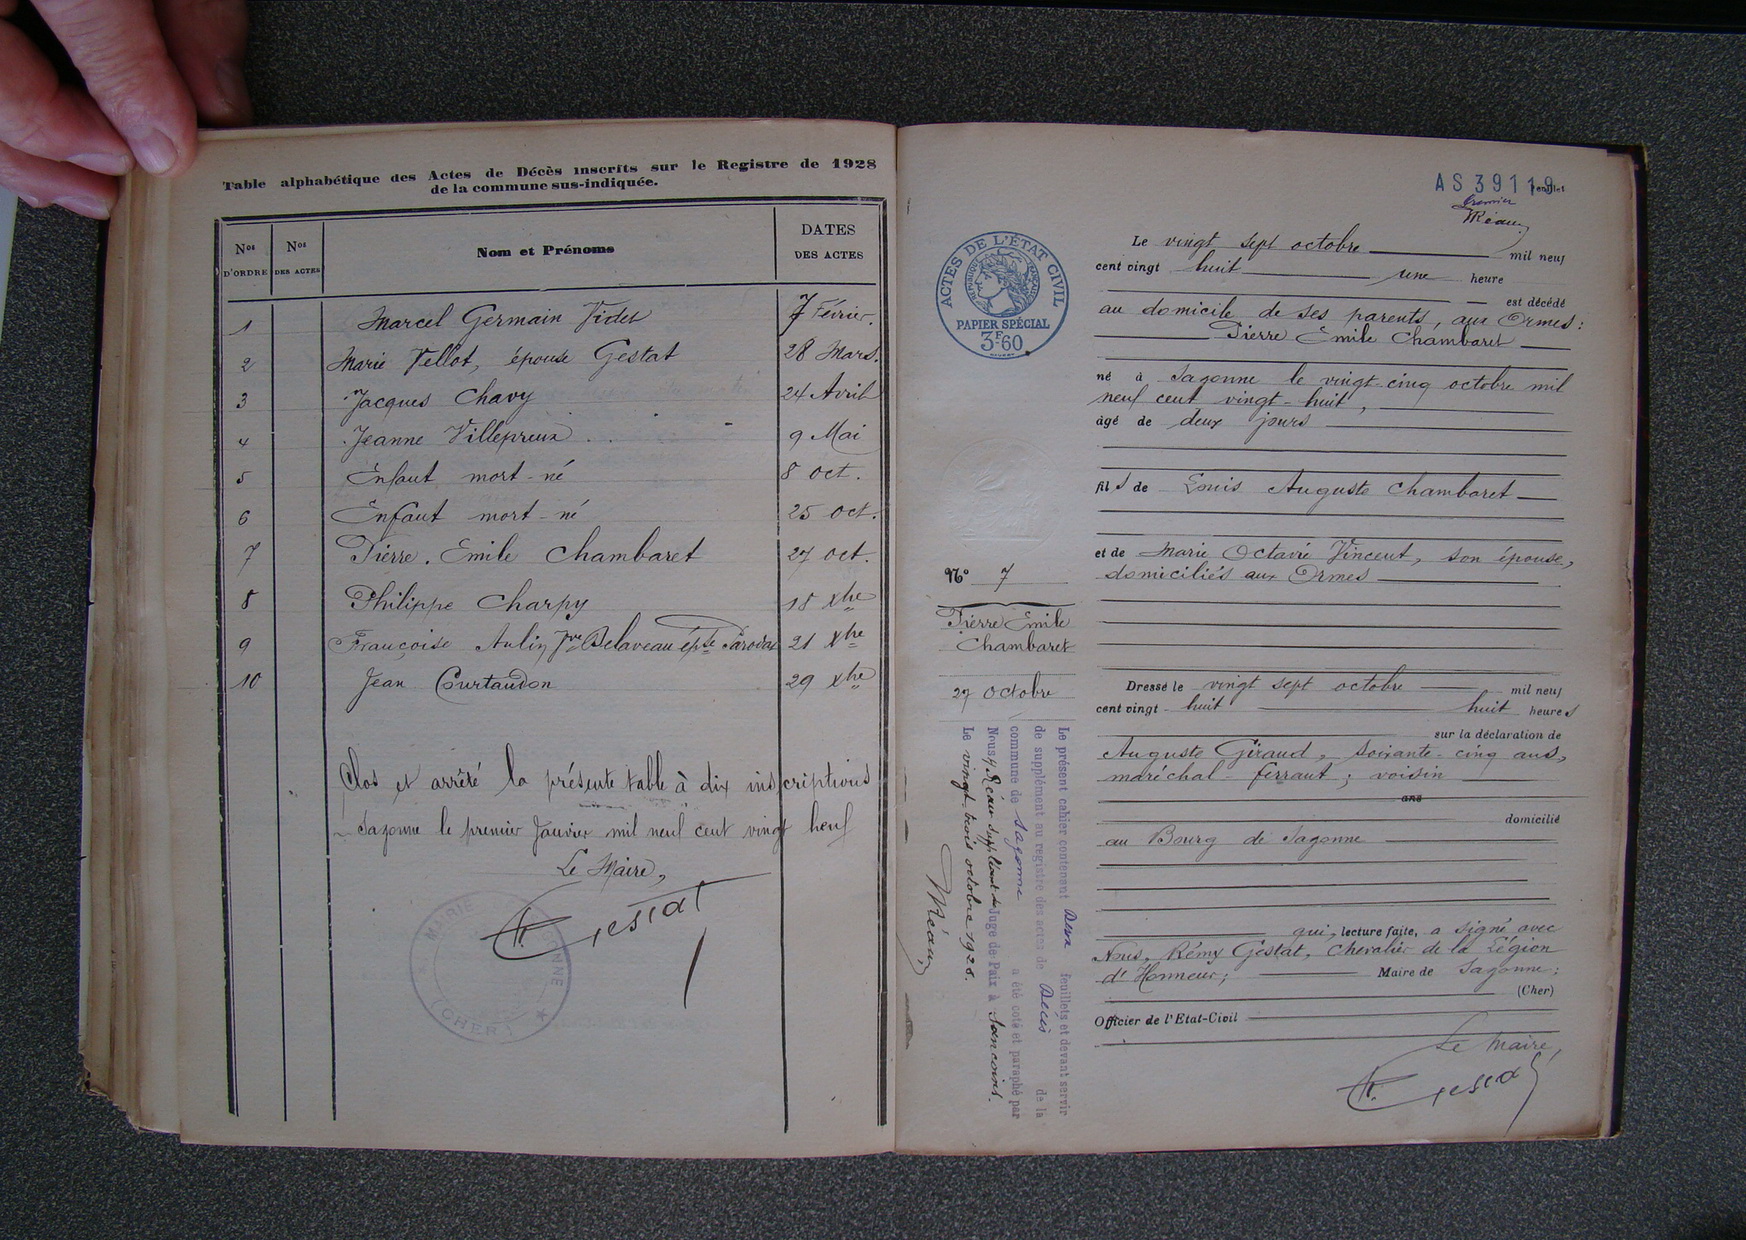 Table alphabétique des Actes de Décès inscrits sur le Registre de 1928
de la commune sus-indiquée.
Nos D'ORDRE Nos DES ACTES Nom et Prénoms DATES DES ACTES
1 Marcel Germain Videt 7 Février.
2 Marie Vellot, épouse Gestat 28 Mars.
3 Jacques Chavy 24 Avril
4 Jeanne Villepreux 9 Mai
5 Enfant mort-né 8 oct.
6 Enfant mort-né 25 oct.
7 Pierre. Emile Chambaret 27 oct.
8 Philippe Charpy 18 Xbre
9 Françoise Aulin Vve Belaveau épse 21 Xbre
10 Jean Courtaudon 29 Xbre
Clos et arrêté la présente table à dix inscriptions
Sagonne le premier Janvier mil neuf cent vingt neuf
Le Maire,
Gestat
MAIRIE DE SAGONNE
(CHER)
AS 39119
feuillet
premier
Réau
ACTES DE L'ÉTAT CIVIL
RÉPUBLIQUE FRANÇAISE
PAPIER SPÉCIAL
3F60
N° 7
Pierre Emile
Chambaret
27 octobre
Le présent cahier contenant deux feuillets et devant servir
de supplément au registre des actes de Décès de la
commune de Sagonne a été coté et paraphé par
Nous, Réau suppléant du Juge de Paix à Sancoins.
Le vingt-trois octobre 1928.
Réau
Le vingt sept octobre mil neuf
cent vingt huit une heure
est décédé
au domicile de ses parents, aux Ormes:
Pierre Emile Chambaret
né à Sagonne le vingt-cinq octobre mil
neuf cent vingt-huit,
âgé de deux jours
fils de Louis Auguste Chambaret
et de Marie Octavie Vincent, son épouse,
domiciliés aux Ormes
Dressé le vingt sept octobre mil neuf
cent vingt-huit huit heures
sur la déclaration de
Auguste Giraud, soixante-cinq ans,
maréchal-ferrant; voisin
ans
domicilié
au Bourg de Sagonne
qui, lecture faite, a signé avec
Nous, Rémy Gestat, Chevalier de la Légion
d'Honneur; Maire de Sagonne;
(Cher)
Officier de l'Etat-Civil
Le Maire,
Gestat